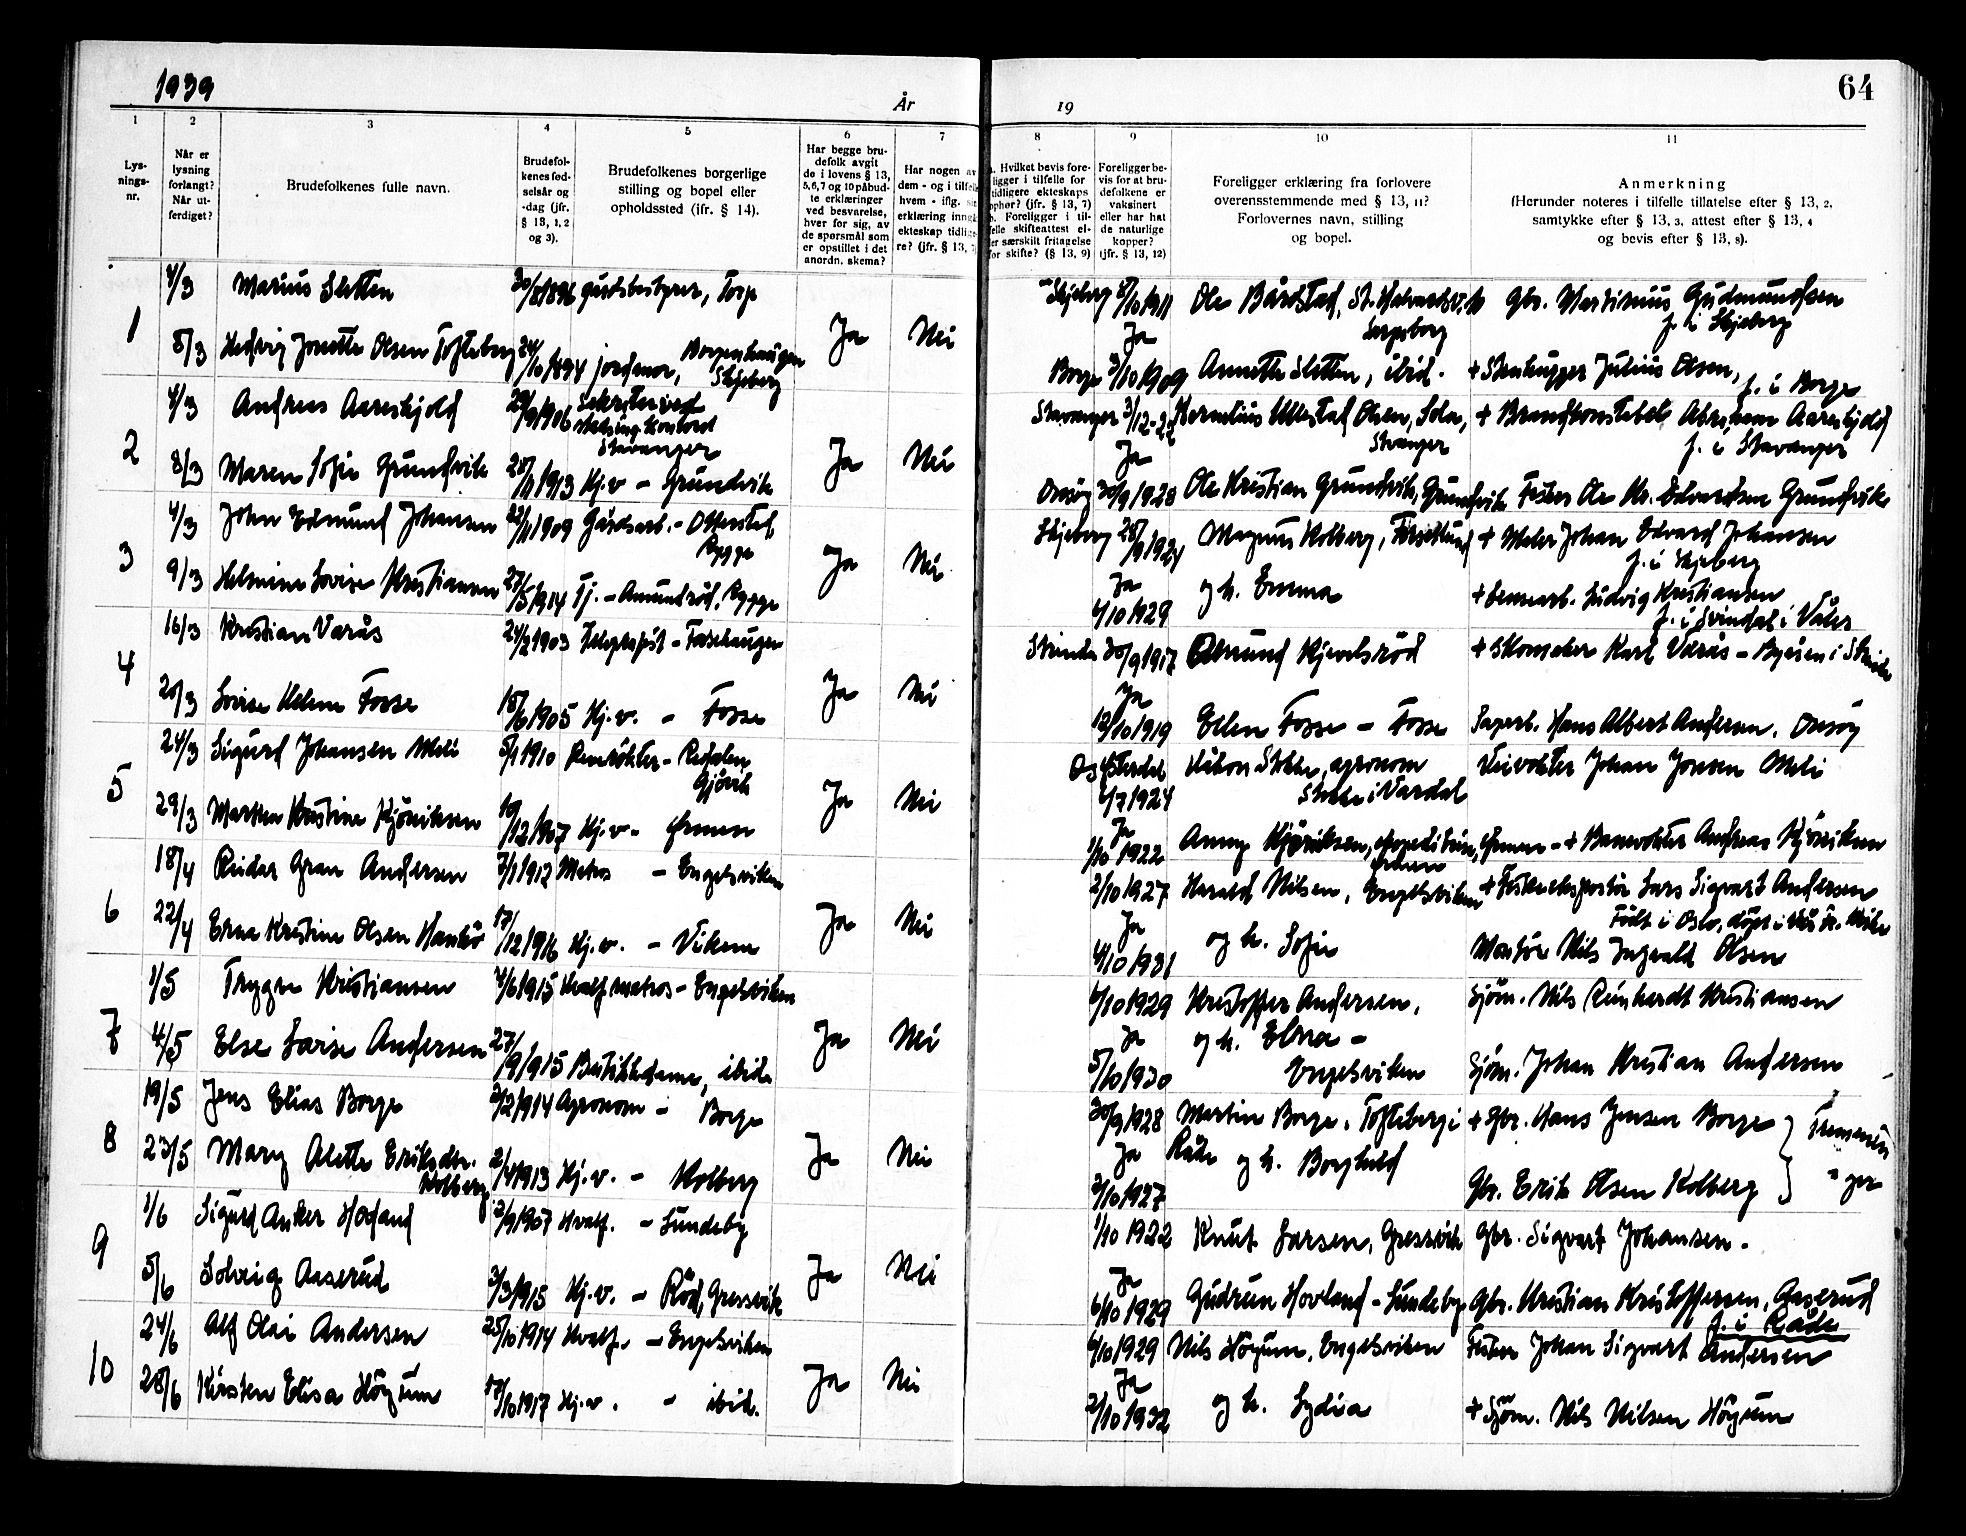 1939
År
19
64
1
2
3
4
5
6
7
8
9
10
11
Lys-
nings-
nr.
Når er
lysning
forlangt?
Når ut-
ferdiget?
Brudefolkenes fulle navn.
Brudefol-
kenes fød-
selsår og
-dag (jfr.
§ 13, 1, 2
og 3).
Brudefolkenes borgerlige
stilling og bopel eller
opholdssted (ifr. § 14).
Har begge bru-
defolk avgit
de i lovens § 13,
5, 6, 7 og 10 påbud-
te erklæringer
ved besvarelse,
hver for sig, av
de spørsmål som
er opstillet i det
anordn. skema?
Har nogen av
dem - og i tilfelle
hvem - iflg. sin
erklæring inngått
ekteskap tidlige-
re? (jfr. § 13,
Hvilket bevis fore-
ligger i tilfelle for
tidligere ekteskaps
ophør? (jfr. § 13, 7)
b. Foreligger i til-
felle skifteattest el-
ler særskilt fritagelse
for skifte? (§ 13, 9)
Foreligger be-
vis for at bru-
defolkene er
vaksinert
eller har hat
de naturlige
kopper?
(jfr. § 13, 12)
Foreligger erklæring fra forlovere
overensstemmende med § 13, 11?
Forlovernes navn, stilling
og bopel.
Anmerkning
(Herunder noteres i tilfelle tillatelse efter § 13, 2,
samtykke efter § 13, 3, attest efter § 13, 4
og bevis efter § 13, 8).
1
4/3 Marius Sletten 30/8 1896 gårdsbestyrer, Torp
Skjeberg 1911 Ole Bårdstad, St. Halvardsvik Gbr. Martinius Gudmundsen
Sarpsborg f. i Skjeberg
8/3 Hedvig Jonette Olsen Tofteberg 24/10 1894 jordmor, Borgenhaugen
Skjeberg
Ja Nei
Ja
Borge 3/10 1909 Annette Sletten, ibid. + Stenhugger Julius Olsen,
f. i Borge
2
4/3 Andreas Aareskjold 29/9 1906 Sekretær ved
Stavanger
Stavanger 3/12-22 Kornelius Ullestad Olsen, Sola, + Brandkonstabel Abraham Aareskjold
Stvanger f. i Stavanger
8/3 Maren Sofie Grundvik 28/11 1913 Hj.v - Grundvik
Ja Nei
Ja
Onsøy 30/9 1928 Ole Kristian Grundvik, Grundvik Fisker Ole Kr. Edvardsen Grundvik
3
4/3 John Edmund Johansen 22/11 1909 Gårdsarb. - Otterstad,
Rygge
Skjeberg 28/9 1924 Magnus Kolberg, + Maler Johan Edvard Johansen
f. i Skjeberg
9/3 Helmine Lovise Kristiansen 27/5 1914 Tj. - Amundrød, Rygge
Ja Nei
Ja
4/10 1929 og h. Emma + Ludvig Kristiansen
f. i Svindal i Våler
4
16/3 Kristian Varås 24/2 1903 Telegrafist - Fossehaugen
Strinda 30/9 1917 Amund Kjevelsrød + Skomaker Karl Varås - Byåsen i Strinda
20/3 Lovise Helene Fosse 18/6 1905 Hj.v. - Fosse
Ja Nei
Ja
12/10 1919 Ellen Fosse - Fosse Sagarb. Hans Albert Andersen, Onsøy
5
24/3 Sigurd Johansen Meli 5/1 1910 Revrøkter - Redalen
Gjøvik
4/7 1924 Håkon Stokke, agronom Veivokter Johan Jonsen Meli
Stokke i Vardal
29/3 Marken Kristine Kjøniksen 19/12 1907 Hj.v - Ørmen
Ja Nei
Ja
1/10 1922 Anny Kjøniksen, ekspeditrise, Ørmen - + Banevokter Andreas Kjøniksen
6
18/4 Reidar Gran Andersen 7/1 1912 Matros - Engelsviken
2/10 1927 Harald Nilsen, Engelsviken + Fiskeeksportør Lars Sigvart Andersen
Født i Oslo, døpt i
22/4 Erna Kristine Olsen Hankø 17/12 1916 Hj.v. - Vikene
Ja Nei
Ja
4/10 1931 og h. Sofie Montør Nils Ingvald Olsen
7
1/5 Trygve Kristiansen 4/6 1915 Hvalf matros - Engelsviken
6/10 1929 Kristoffer Andersen, Sjøm. Nils Reinhardt Kristiansen
4/5 Else Lovise Andersen 27/9 1915 Butikkdame, ibid.
Ja Nei
Ja
5/10 1930 og h. Elna -
Engelsviken
Sjøm. Johan Kristian Andersen
8
19/5 Jens Elias Borge 2/2 1914 Agronom - Borge
30/9 1928 Martin Borge, Tofteberg i + Gbr. Hans Jensen Borge } Tremenin-
ger
23/5 Mary Alette Eriksdtr.
Kolberg
2/4 1913 Hj.v. - Kolberg
Ja Nei
Ja
2/10 1927 Råde og h. Borghild Gbr. Erik Olsen Kolberg
9
1/6 Sigurd Anker Hovland 2/9 1907 Hvalf. - Lundeby
1/10 1922 Knut Larsen, Gressvik Gbr. Sigvart Johansen.
5/6 Solveig Aaserud 3/3 1915 Hj.v. - Rød, Gressvik
Ja Nei
Ja
6/10 1929 Gudrun Hovland - Lundeby Gbr. Kristian Kristoffersen, Aaserud
f. i Råde
10
24/6 Alf Olai Andersen 25/10 1914 Hvalf. - Engelsviken
6/10 1929 Nils Høyum, Engelsviken Fisker Johan Sigvart Andersen
28/6 Kirsten Elisa Høyum 17/10 1917 Hj.v. - ibid.
Ja Nei
Ja
2/10 1932 og h. Lydia + Sjøm. Nils Nilsen Høyum